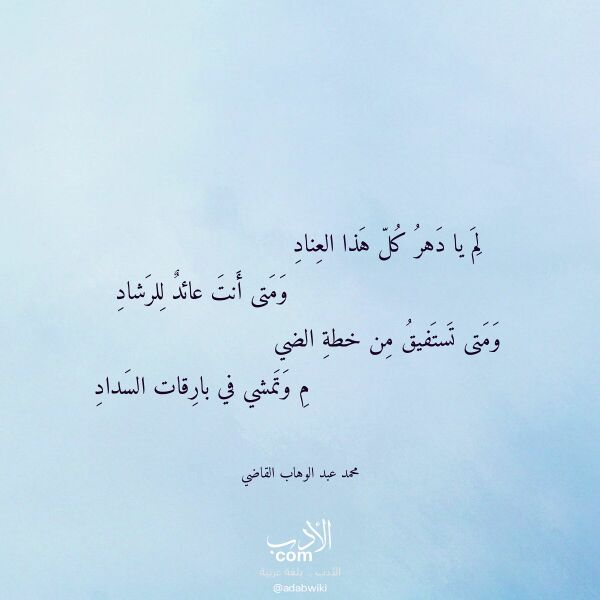 لِمَ يا دَهرُ كُلّ هَذا العِنادِ
وَمَتى أَنتَ عائدٌ لِلرَشادِ
وَمَتى تَستَفيقُ مِن خطةِ الضي
مِ وَتَمشي في بارِقات السَدادِ
محمد عبد الوهاب القاضي
الأدب
com
الأدب .. بلغة عربية
@adabwiki